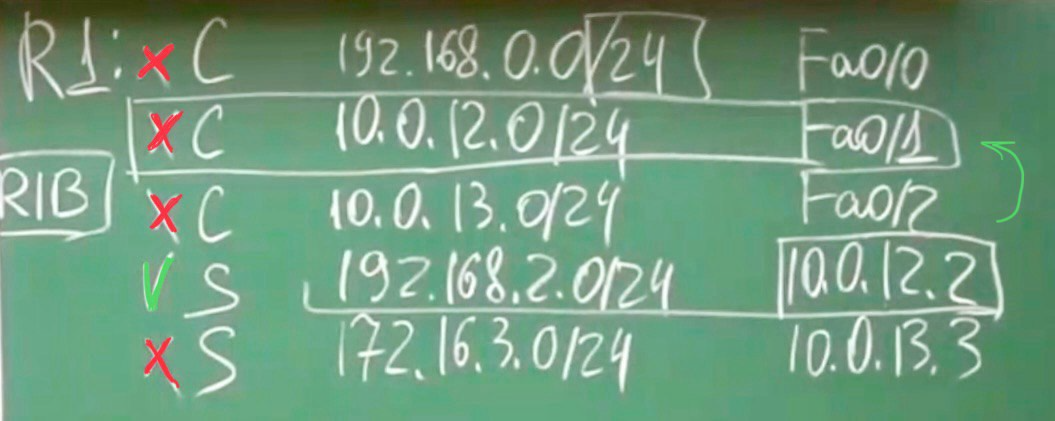 R1: × C 192.168.0.0/24 Fa0/0
× C 10.0.12.0/24 Fa0/1
RIB × C 10.0.13.0/24 Fa0/2
V S 192.168.2.0/24 10.0.12.2
× S 172.16.3.0/24 10.0.13.3